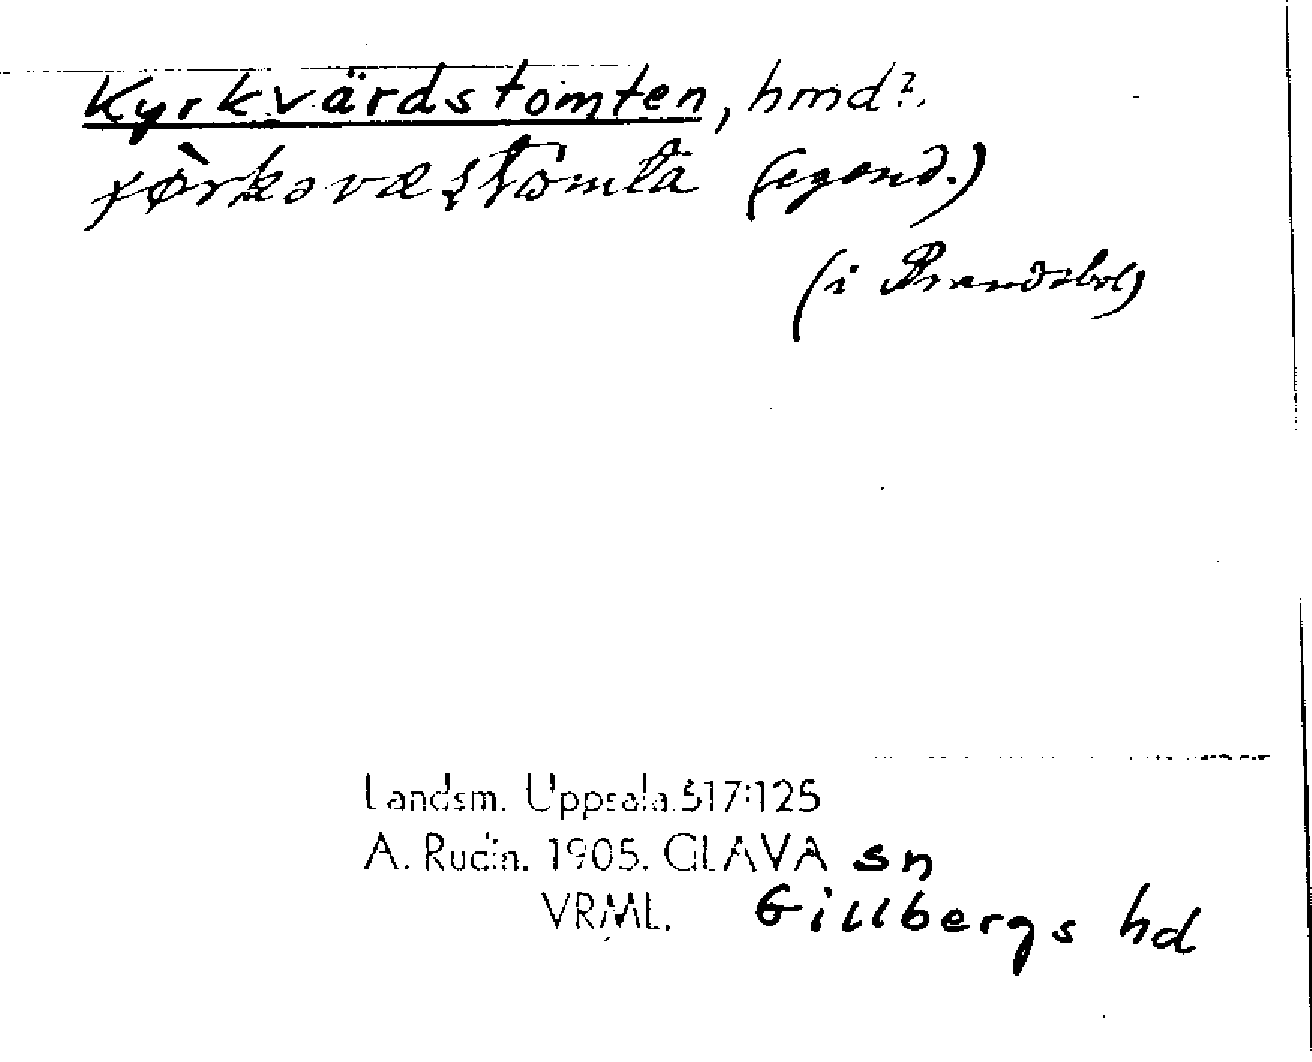 Kyrkvärdstomten, hmd?.
(egend.)
(i Brandsbol)
Landsm. Uppsala.517:125
A. Rudin. 1905. GLAVA sn
VRML. Gillbergs hd